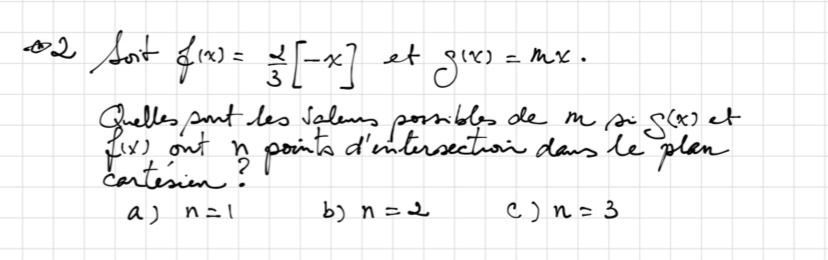 2 Soit f(x) = 2/3 [-x] et g(x) = mx.
Quelles sont les valeurs possibles de m si g(x) et
f(x) ont n points d'intersection dans le plan
cartésien ?
a) n=1 b) n=2 c) n=3